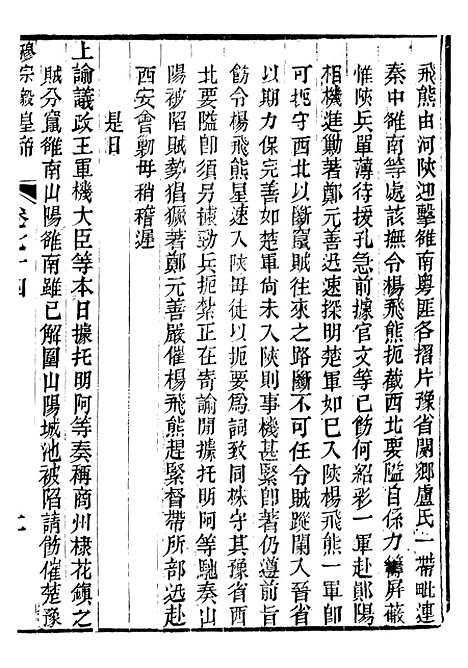 飛熊由河陝迎擊雒南粵匪各摺片豫省閿鄉盧氏一帶毗連
秦中雒南等處該撫令楊飛熊扼截西北要隘自係力籌屏蔽
惟陝兵單薄待援孔急前據官文等已飭何紹彩一軍赴鄖陽
相機進勦著鄭元善迅速探明楚軍如已入陝楊飛熊一軍卽
可扼守西北以斷竄賊往來之路斷不可任令賊蹤闌入晉省
以期力保完善如楚軍尙未入陝則事機甚緊卽著仍遵前旨
飭令楊飛熊星速入陝毋徒以扼要爲詞致同株守其豫省西
北要隘卽須另撥勁兵扼紮正在寄諭閒據托明阿等馳奏山
陽被陷賊勢猖獗著鄭元善嚴催楊飛熊趕緊督帶所部迅赴
西安會勦毋稍稽遲
是日
上諭議政王軍機大臣等本日據托明阿等奏稱商州棣花鎭之
賊分竄雒南山陽雒南雖已解圍山陽城池被陷請飭催楚豫
穆宗毅皇帝
卷七十四